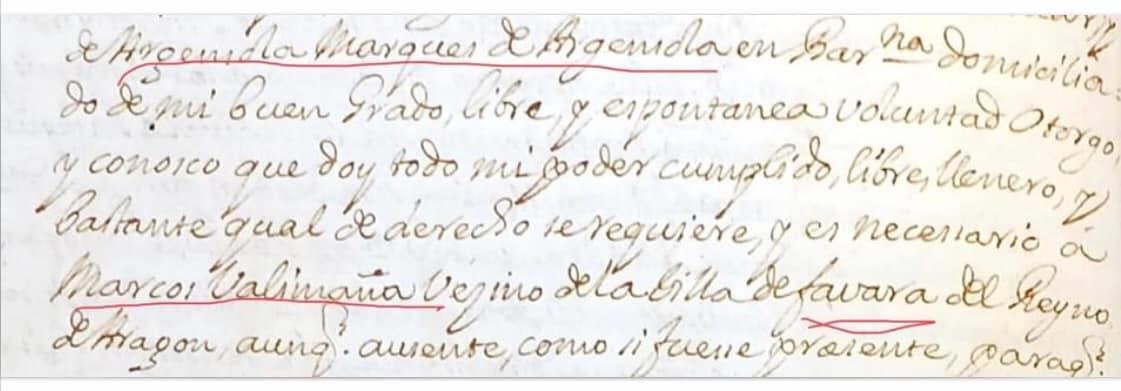 de Argensola Marques de Argensola en Bar.na domicilia-
do de mi buen Grado, libre, y espontanea voluntad Otorgo,
y conosco que doy todo mi poder cumplido, libre, llenero, y
bastante qual de derecho se requiere, y es necessario â
Marcos Valimaña Vezino de la Billa de favara del Reyno
de Aragon aunq.e ausente, como si fuese præsente, paraq.e